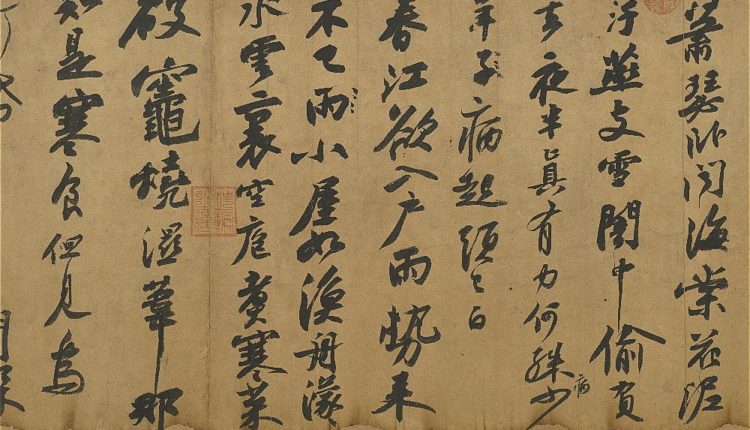 蕭瑟卧聞海棠花泥
汙燕支雪闇中偷負
去夜半真有力何殊少
病
年子病起頭已白
春江欲入户雨勢来
不已雨小屋如漁舟濛
水雲裏空庖煮寒菜
破竈燒濕葦那
知是寒食但見烏